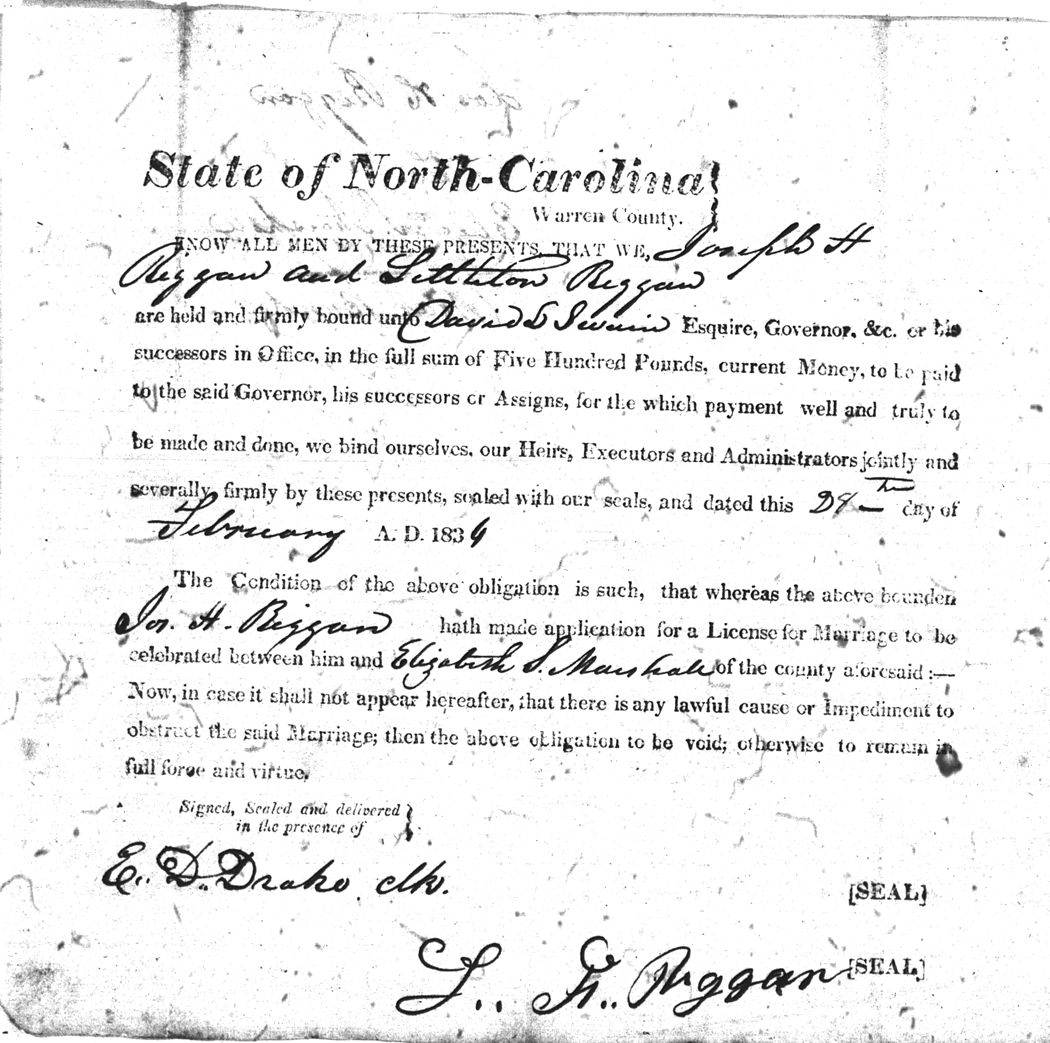 State of North-Carolina
Warren County.
KNOW ALL MEN BY THESE PRESENTS, THAT WE, Joseph H
Riggan and Littleton Riggan
are held and firmly bound unto David L Swain Esquire, Governor, &c. or his
successors in Office, in the full sum of Five Hundred Pounds, current Money, to be paid
to the said Governor, his successors or Assigns, for the which payment well and truly to
be made and done, we bind ourselves, our Heirs, Executors and Administrators jointly and
severally, firmly by these presents, sealed with our seals, and dated this 28th day of
February A. D. 1834
The Condition of the above obligation is such, that whereas the above bounden
Jos. H. Riggan hath made application for a License for Marriage to be
celebrated between him and Elizabeth S. Marshall of the county aforesaid :—
Now, in case it shall not appear hereafter, that there is any lawful cause or Impediment to
obstruct the said Marriage; then the above obligation to be void; otherwise to remain in
full force and virtue.
Signed, Sealed and delivered
in the presence of
E. D. Drake clk.
[SEAL]
L. Riggan [SEAL]